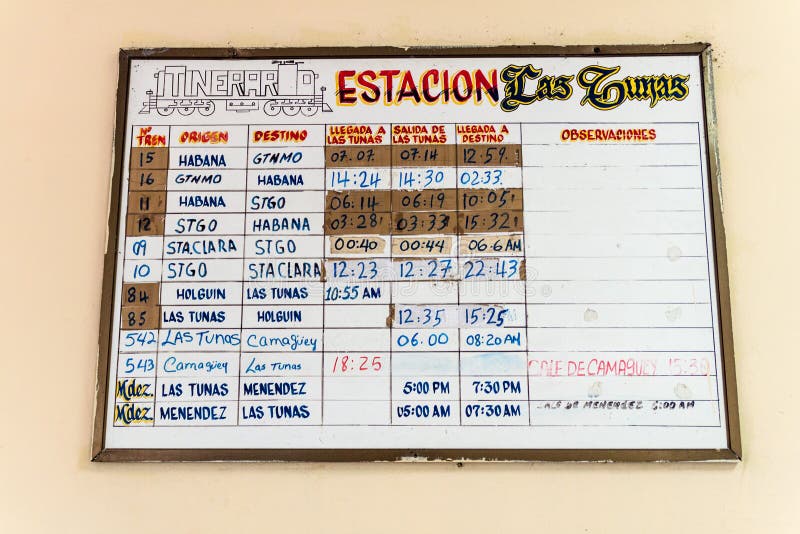 ITINERARIO ESTACION Las Tunas
Nº TREN ORIGEN DESTINO LLEGADA A LAS TUNAS SALIDA DE LAS TUNAS LLEGADA A DESTINO OBSERVACIONES
15 HABANA GTNMO 07.07. 07.14 12:59
16 GTNMO HABANA 14:24 14:30 02:33
11 HABANA STGO 06:14 06:19 10:05
12 STGO HABANA 03:28 03:33 15:32
09 STA.CLARA STGO 00:40 00:44 06.6 AM
10 STGO STA CLARA 12:23 12:27 22:43
84 HOLGUIN LAS TUNAS 10:55 AM
85 LAS TUNAS HOLGUIN 12:35 15:25
542 LAS Tunas Camagüey 06.00 08:20 AM
543 Camagüey Las Tunas 18:25 SALE DE CAMAGUEY 15:30
Mdez. LAS TUNAS MENENDEZ 5:00 PM 7:30 PM
Mdez. MENENDEZ LAS TUNAS 05:00 AM 07:30 AM SALE DE MENENDEZ 5:00 AM